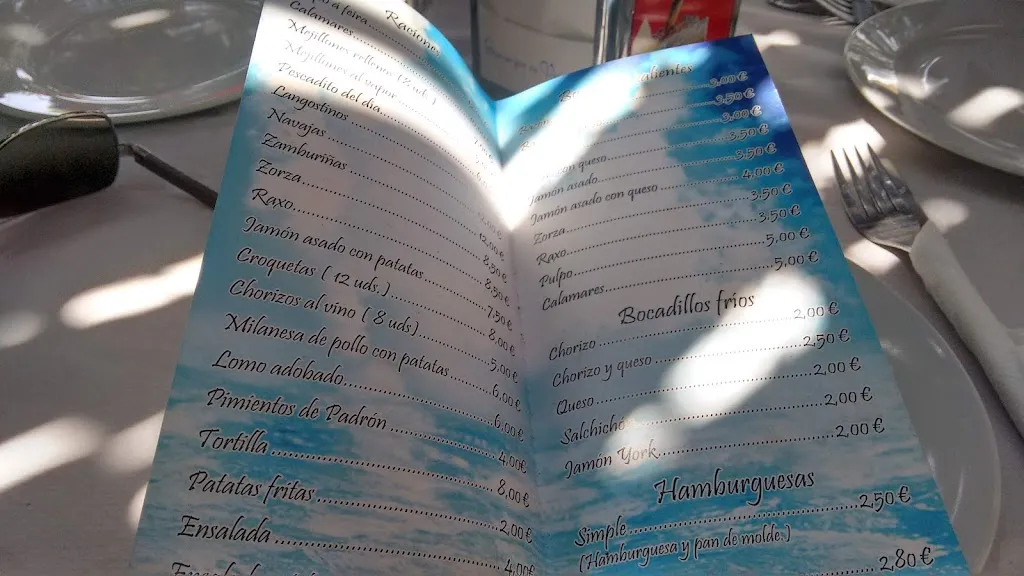 Raciones
a feira
Calamares
Mejillones rellenos (2 uds.)
Mejillones al vapor
Pescado del día
Langostinos
Navajas
Zamburiñas 12,00 €
Zorza 8,50 €
Raxo 8,50 €
Jamón asado con patatas 7,50 €
Croquetas ( 12 uds.) 8,00 €
Chorizos al vino ( 8 uds) 5,00 €
Milanesa de pollo con patatas 6,00 €
Lomo adobado 6,00 €
Pimientos de Padrón 4,00€
Tortilla 8,00 €
Patatas fritas 2,00 €
Ensalada 4,00€
calientes
3,00 €
3,50 €
3,00 €
con queso 3,50 €
Jamón asado 3,50 €
Jamón asado con queso 4,00 €
Zorza 3,50 €
Raxo 3,50 €
Pulpo 5,00 €
Calamares 5,00 €
Bocadillos fríos
Chorizo 2,00 €
Chorizo y queso 2,50 €
Queso 2,00 €
Salchichón 2,00 €
Jamón York 2,00 €
Hamburguesas
Simple 2,50 €
(Hamburguesa y pan de molde.)
2,80 €